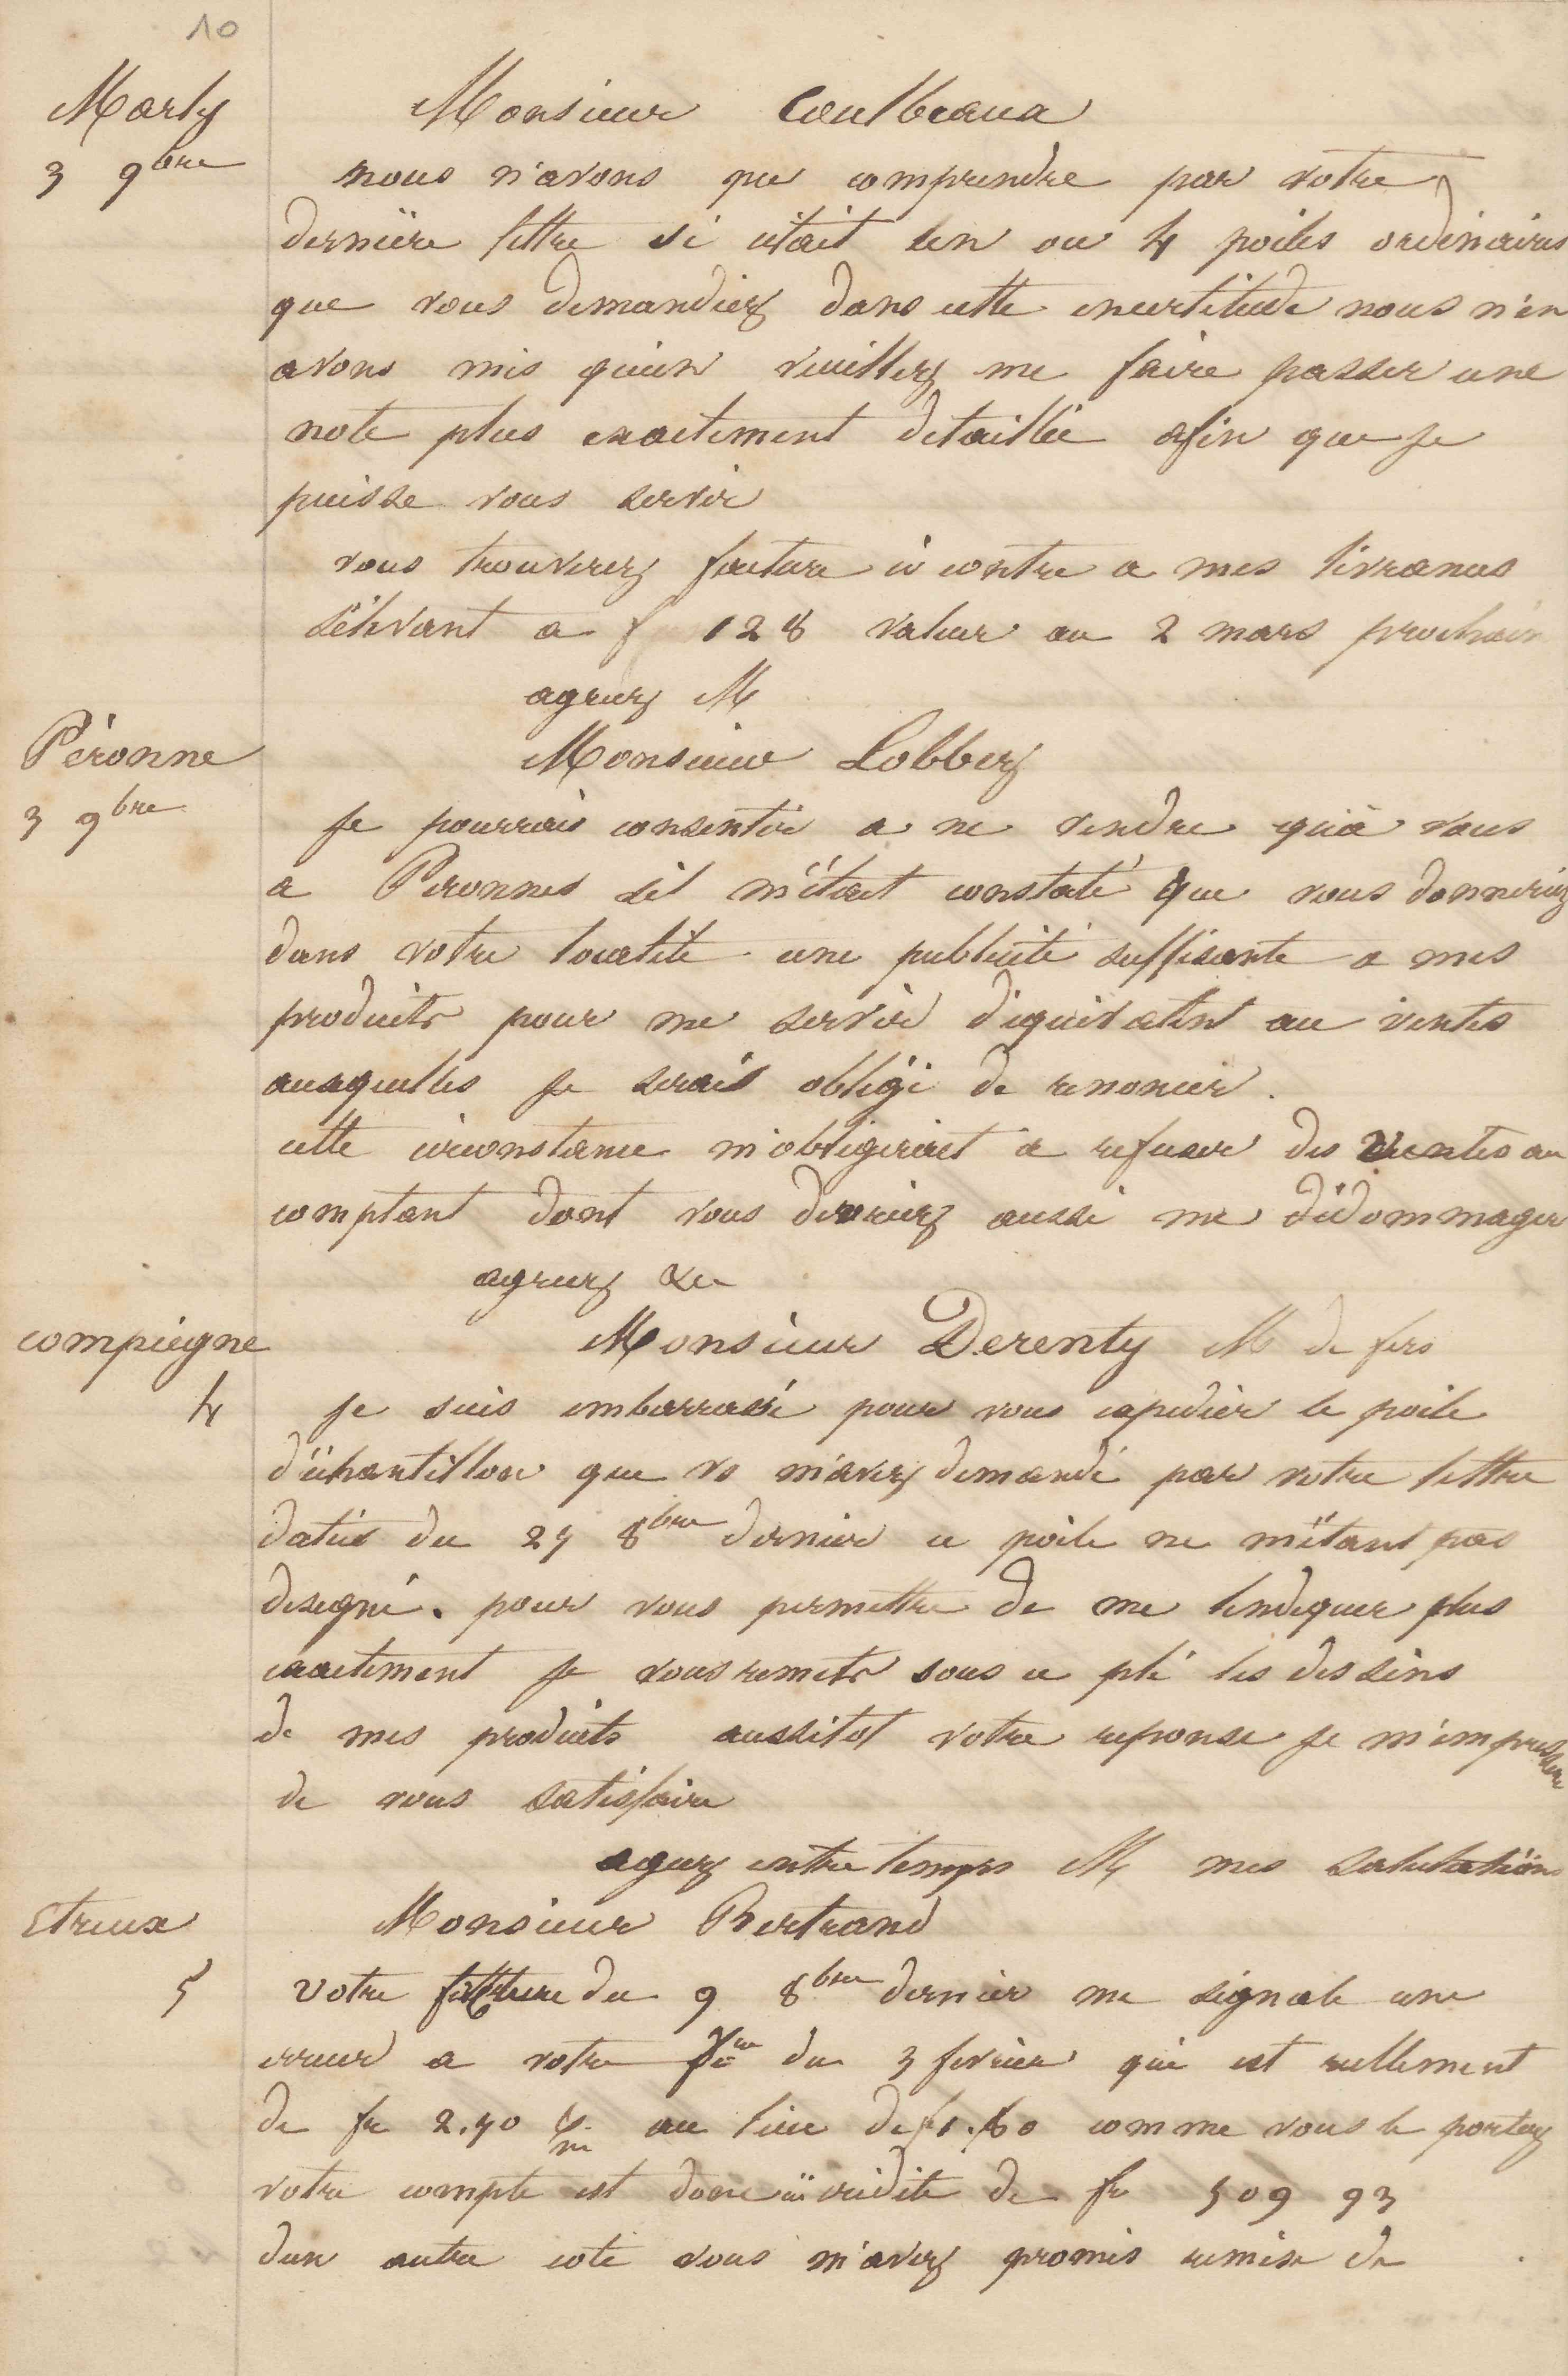 10
Marly
3 9bre
Monsieur Coulbeaux
nous n'avons pu comprendre par votre
dernière lettre si cétait un ou 4 poiles ordinaires
que vous demandiez dans cette incertitude nous n'en
avons mis qu'un veuillez me faire passer une
note plus exactement detaillée afin que je
puisse vous servir
vous trouverez facture ci contre a mes livrances
s'élevant a f 128 valeur au 2 mars prochain
agreez M
Péronne
3 9bre
Monsieur Lobbez
Je pourrais consentir a ne vendre qu'à vous
a Peronnes sil m'était constaté que vous donneriez
dans votre localité une publicité suffisante a mes
produits pour me servir d'equivalent au ventes
auxquelles je serais obligé de renoncer.
cette circonstance m'obligerait a refuser des ventes au
comptant dont vous devriez aussi me dédommager
agreez &c
compiegne
4
Monsieur Derenty M de fers
Je suis embarrassé pour vous expedier le poile
d'échantillon que vs m'avez demandé par votre lettre
datée du 27 8bre dernier ce poile ne m'étant pas
desegné. pour vous permettre de me lindiquer plus
exactement je vous remets sous ce pli les dessins
de mes produits aussitot votre reponse je m'empresserai
de vous satisfaire
agreez entre temps M mes salutations
Etreux
5
Monsieur Bertrand
Votre facture du 9 8bre dernier me signale une
erreur a votre fre du 3 fevrier qui est reellement
de fr 2.70 au lieu de f1.60 comme vous le portez
votre compte est donc crédité de fr 509 93
dun autre coté vous m'avez promis remise de